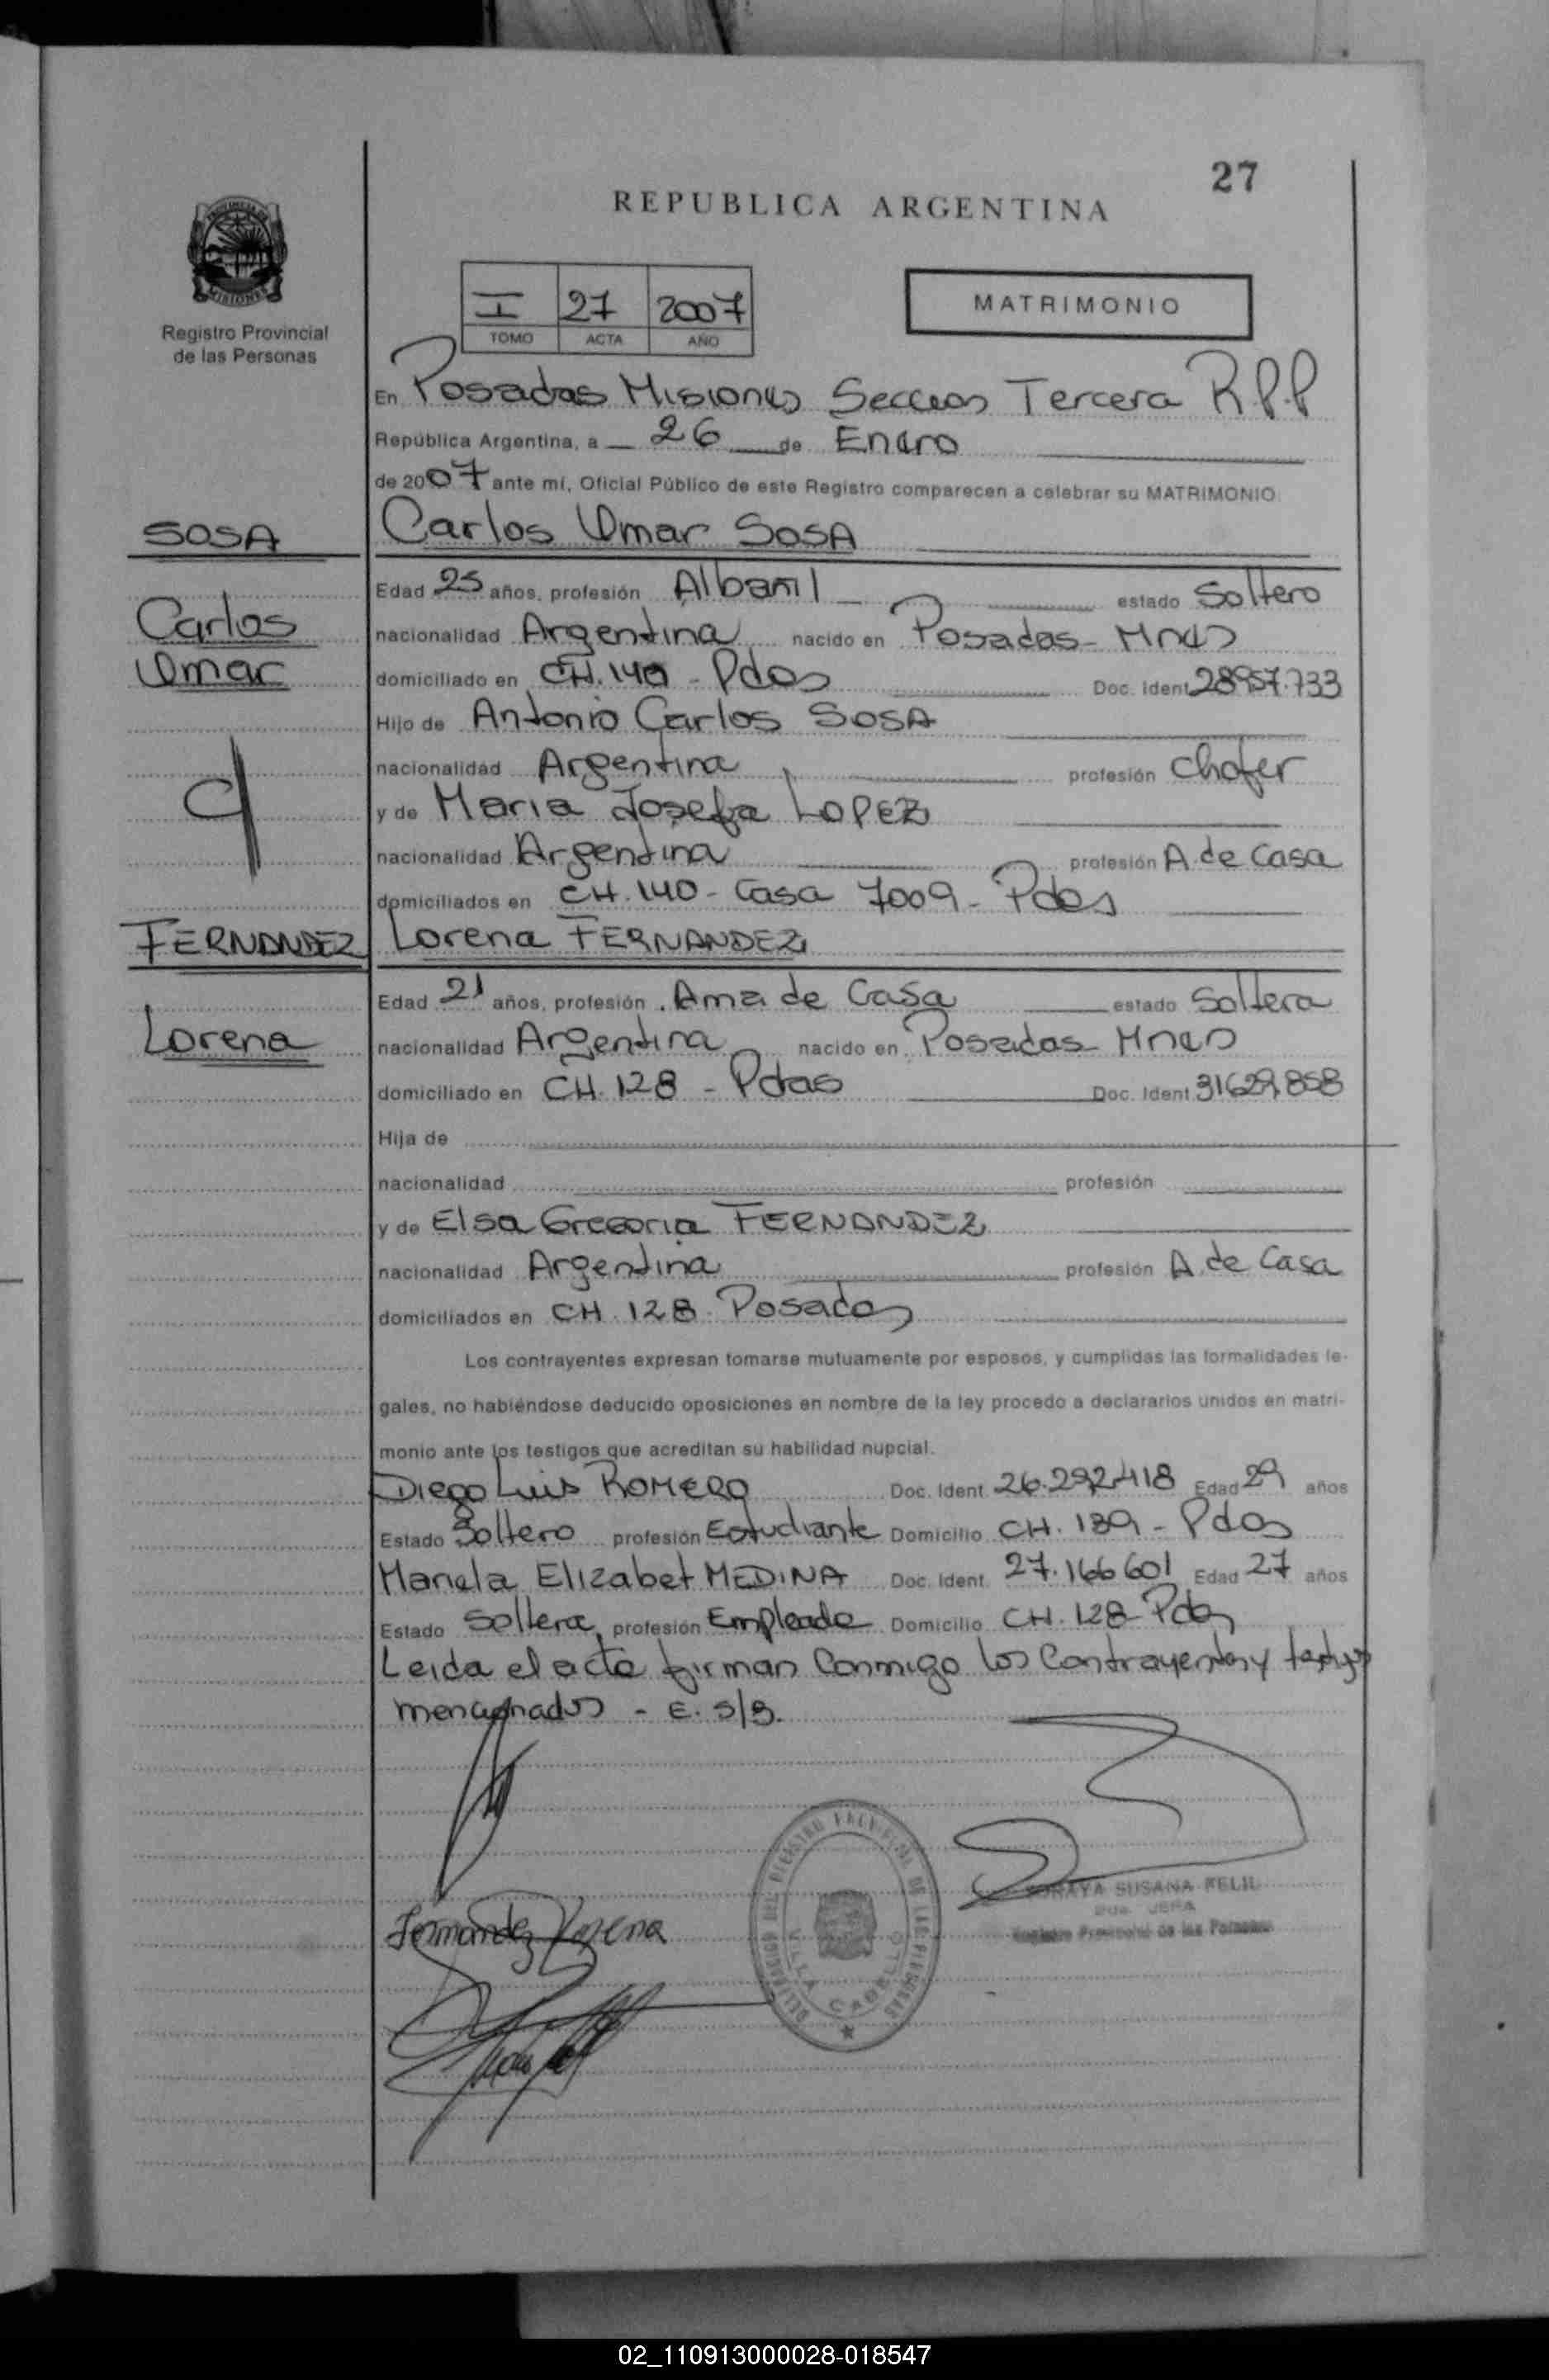 27
REPUBLICA ARGENTINA
PROVINCIA DE MISIONES
Registro Provincial
de las Personas
I 27 2007
TOMO ACTA AÑO
MATRIMONIO
En Posadas Misiones Seccion Tercera R.P.P
República Argentina, a 26 de Enero
de 2007 ante mí, Oficial Público de este Registro comparecen a celebrar su MATRIMONIO
SOSA Carlos Omar SOSA
Edad 25 años, profesión Albañil estado Soltero
Carlos nacionalidad Argentina nacido en Posadas - Mnes
Omar domiciliado en CH. 140 - Pdas Doc. Ident 28957.733
Hijo de Antonio Carlos SOSA
nacionalidad Argentina profesión Chofer
y de Maria Josefa LOPEZ
nacionalidad Argentina profesión A. de Casa
domiciliados en CH. 140 - Casa 7009 - Pdas
FERNANDEZ Lorena FERNANDEZ
Edad 21 años, profesión Ama de Casa estado Soltera
Lorena nacionalidad Argentina nacido en Posadas - Mnes
domiciliado en CH. 128 - Pdas Doc. Ident 31629.858
Hija de
nacionalidad profesión
y de Elsa Gregoria FERNANDEZ
nacionalidad Argentina profesión A. de Casa
domiciliados en CH. 128 Posadas
Los contrayentes expresan tomarse mutuamente por esposos, y cumplidas las formalidades le-
gales, no habiéndose deducido oposiciones en nombre de la ley procedo a declararlos unidos en matri-
monio ante los testigos que acreditan su habilidad nupcial.
Diego Luis ROMERO Doc. Ident. 26.292.418 Edad 29 años
Estado Soltero profesión Estudiante Domicilio CH. 139 - Pdas
Mariela Elizabet MEDINA Doc. Ident. 27.166601 Edad 27 años
Estado Soltera profesión Empleada Domicilio CH. 128 - Pdas
Leida el acta firman Conmigo los Contrayentes y testigos
mencionados - E. S/B.
Fernandez Lorena
DELEGACION DEL REGISTRO PROVINCIAL DE LAS PERSONAS
VILLA CABELLO
SORAYA SUSANA KELIL
JEFA
Registro Provincial de las Personas
02_110913000028-018547